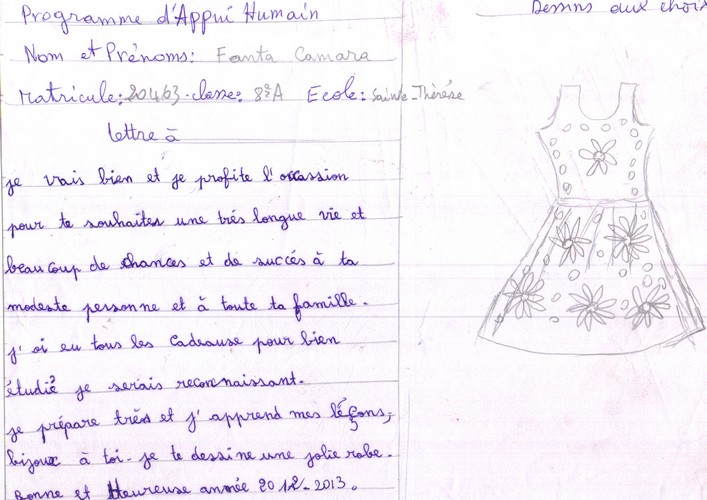 Programme d'Appui Humain
Dessins aux choix
Nom et Prénoms: Fanta Camara
Matricule: 20463 classe: 8è A Ecole: Sainte-Thérèse
lettre à
je vais bien et je profite l'occassion
pour te souhaiter une très longue vie et
beaucoup de chances et de succés à ta
modeste personne et à toute ta famille.
j'ai eu tous les Cadeause pour bien
étudié je serais reconnaissant.
je prépare très et j'apprend mes léçons,
bijoux à toi. je te dessine une jolie robe.
Bonne et Heureuse année 2012-2013.